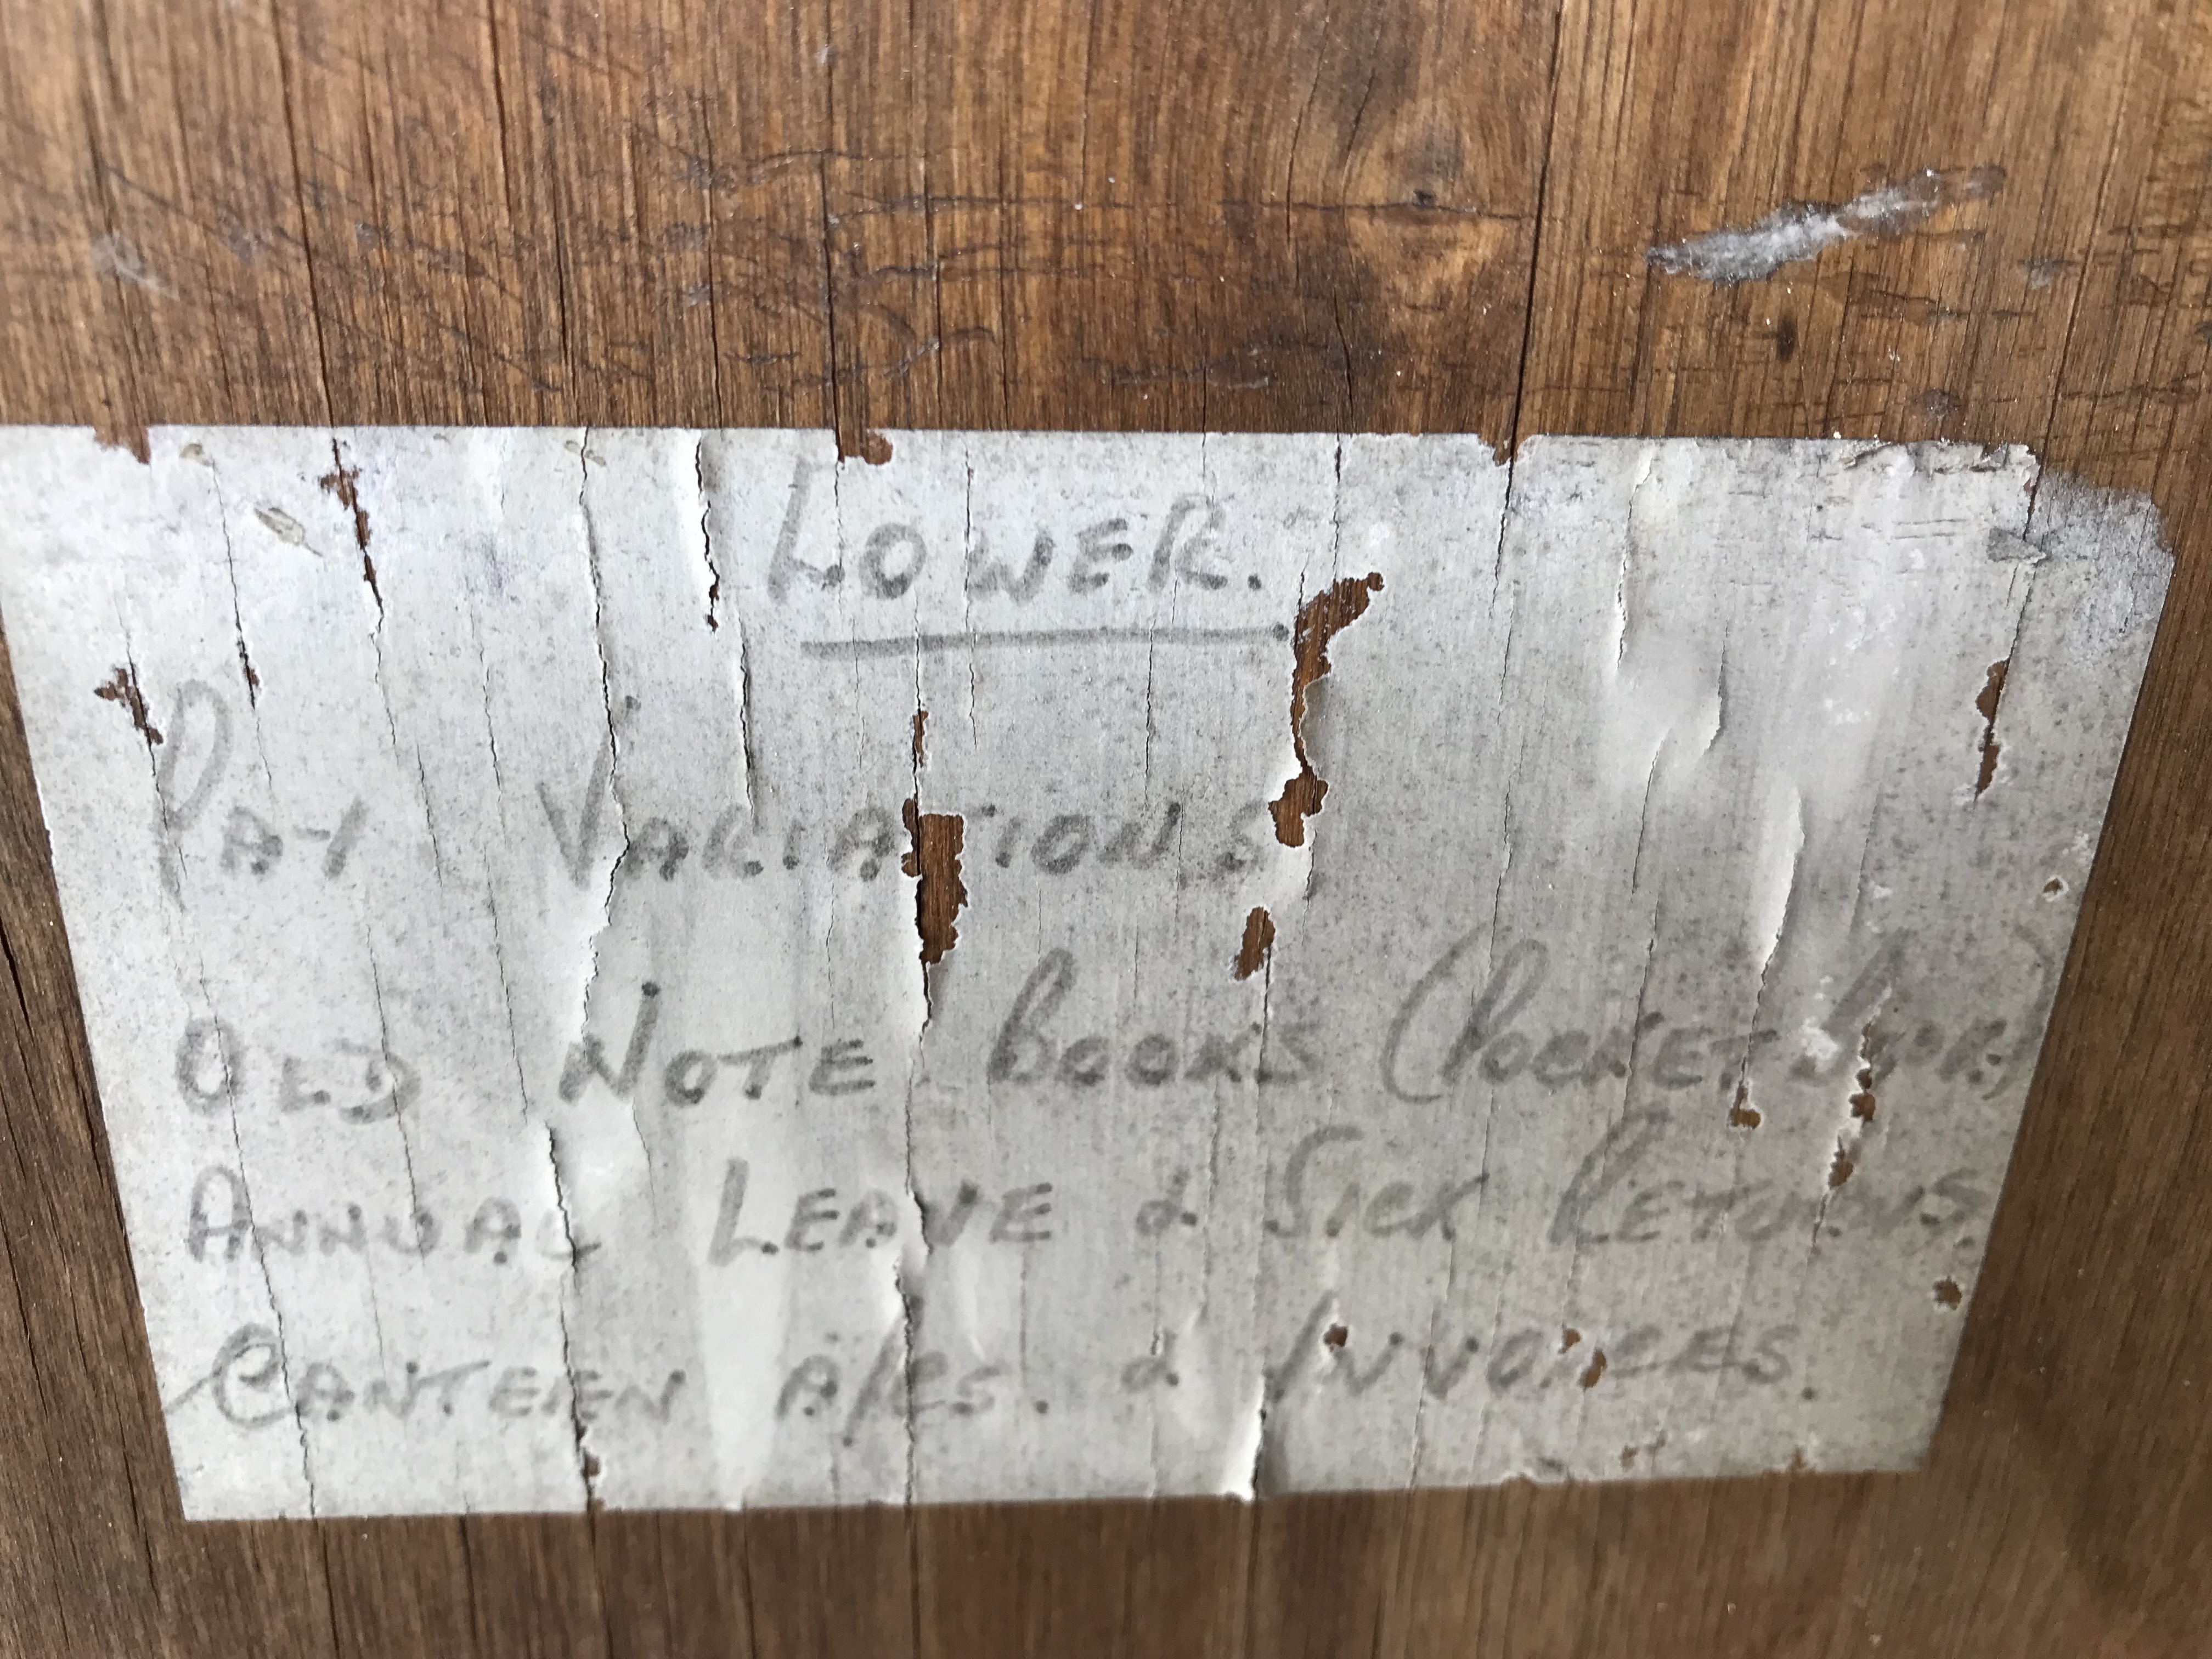 LOWER.
PAY VARIATIONS
OLD NOTE BOOKS (POCKET
ANNUAL LEAVE & SICK RETURNS.
CANTEEN A/CS. & INVOICES.